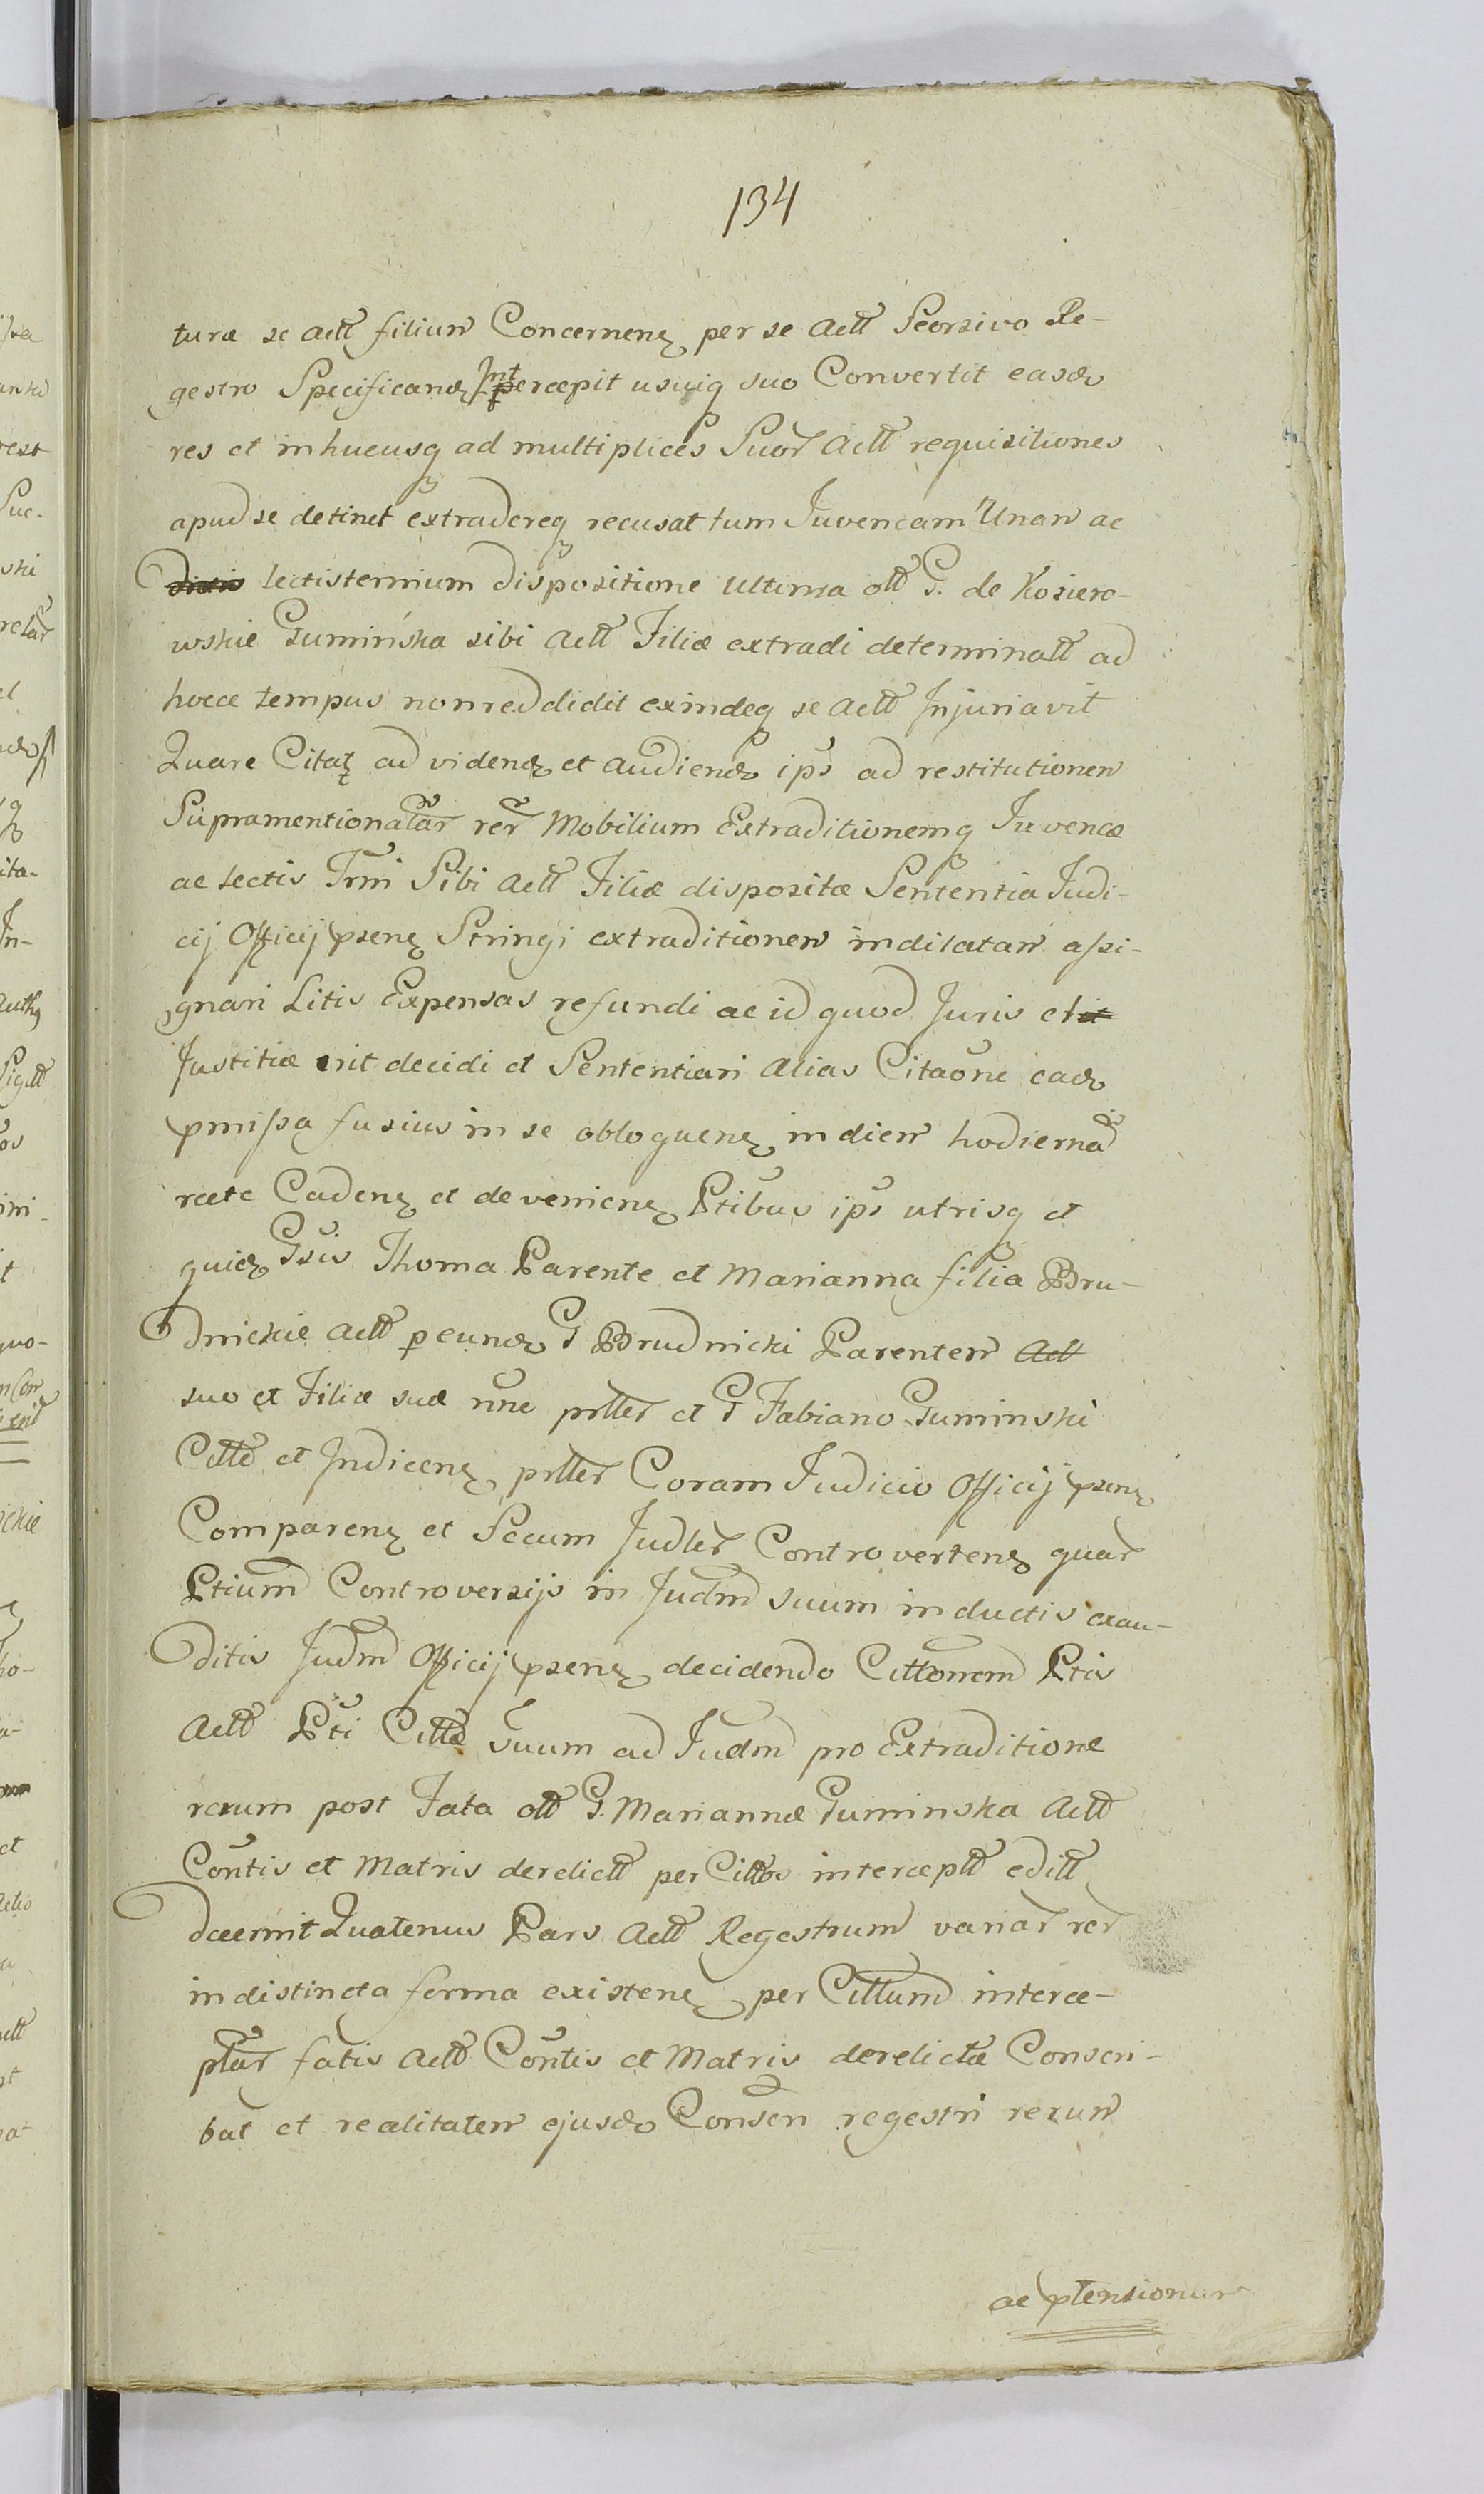 134
turæ se Actt filium Concernen per se Actt Seorsivo Re-
gestro Specificand Intpercepit usuiq suo Convertit easd
res et inhucusq ad multiplices Suor Actt requisitiones
apud se detinet extradereq recusat tum Iuvencam Unam ac
lectisternium dispositione ultima olt G. de Kosiero-
wskie Gumińska sibi Actt Filiæ extradi determinatt ad
hocce tempus nonreddidit exindeq se Actt Injuriavit
Quare Citat ad vidend et audiend ips ad restitutionem
Supramentionatar rer Mobilium Extraditionemq Iuvencæ
ac lectis Trni Sibi Actt Filiæ dispositæ Sententia Iudi-
cij Officij psens Stringi extraditionem indilatam assi-
gnari Litis Expensas refundi ac id quod Juris et
Justitiæ erit decidi et Sententiari alias Citaone ead
pmissa fusius in se obloquen in diem hodierna
recte Caden et devenien Ptibus ips utrisq et
quid Gsis Thoma Parente et Marianna filia Bru-
dnickie Actt peund G Brudnicki Parentem Act
suo et Filiæ suæ nne prlter et G Fabiano Guminski
Citto et Indicen prlter Coram Iudicio Officij psen
Comparen et Secum Judler Controverten quar
Ptium Controversijs in Judm suum inductis exau-
ditis Judm Officij psens decidendo Cittonem Ptis
Actt Pti Cittæ suum ad Iudm pro Extraditione
rerum post Fata olt G. Mariannæ Guminska Actt
Contis et Matris derelictt per Cittos interceptt editt
decernit Quatenus Pars Actt Regestrum variar rer
in distincta forma existen per Cittum interce-
ptar fatis Actt Contis et Matris derelictæ Conscri-
bat et realitatem ejusd Conscn regestri rerum
ac ptensionum